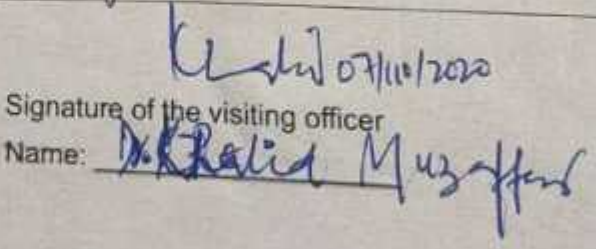 Khalid 07/10/2020
Signature of the visiting officer
Name: Dr. Khalid Muzaffar